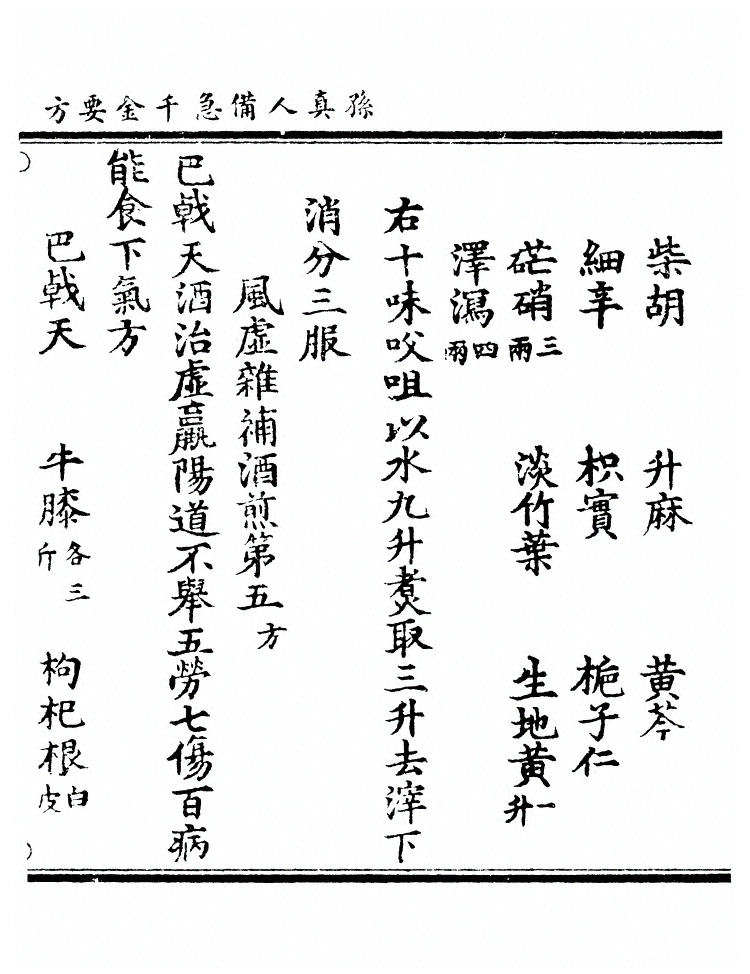 孫真人備急千金要方
柴胡 升麻 黄芩
細辛 枳實 梔子仁
芒硝三兩 淡竹葉 生地黄一升
澤瀉四兩
右十味㕮咀以水九升煑取三升去滓下
消分三服
風虛雜補酒煎第五方
巴戟天酒治虛羸陽道不舉五勞七傷百病
能食下氣方
巴戟天 牛膝各三斤 枸杞根白皮